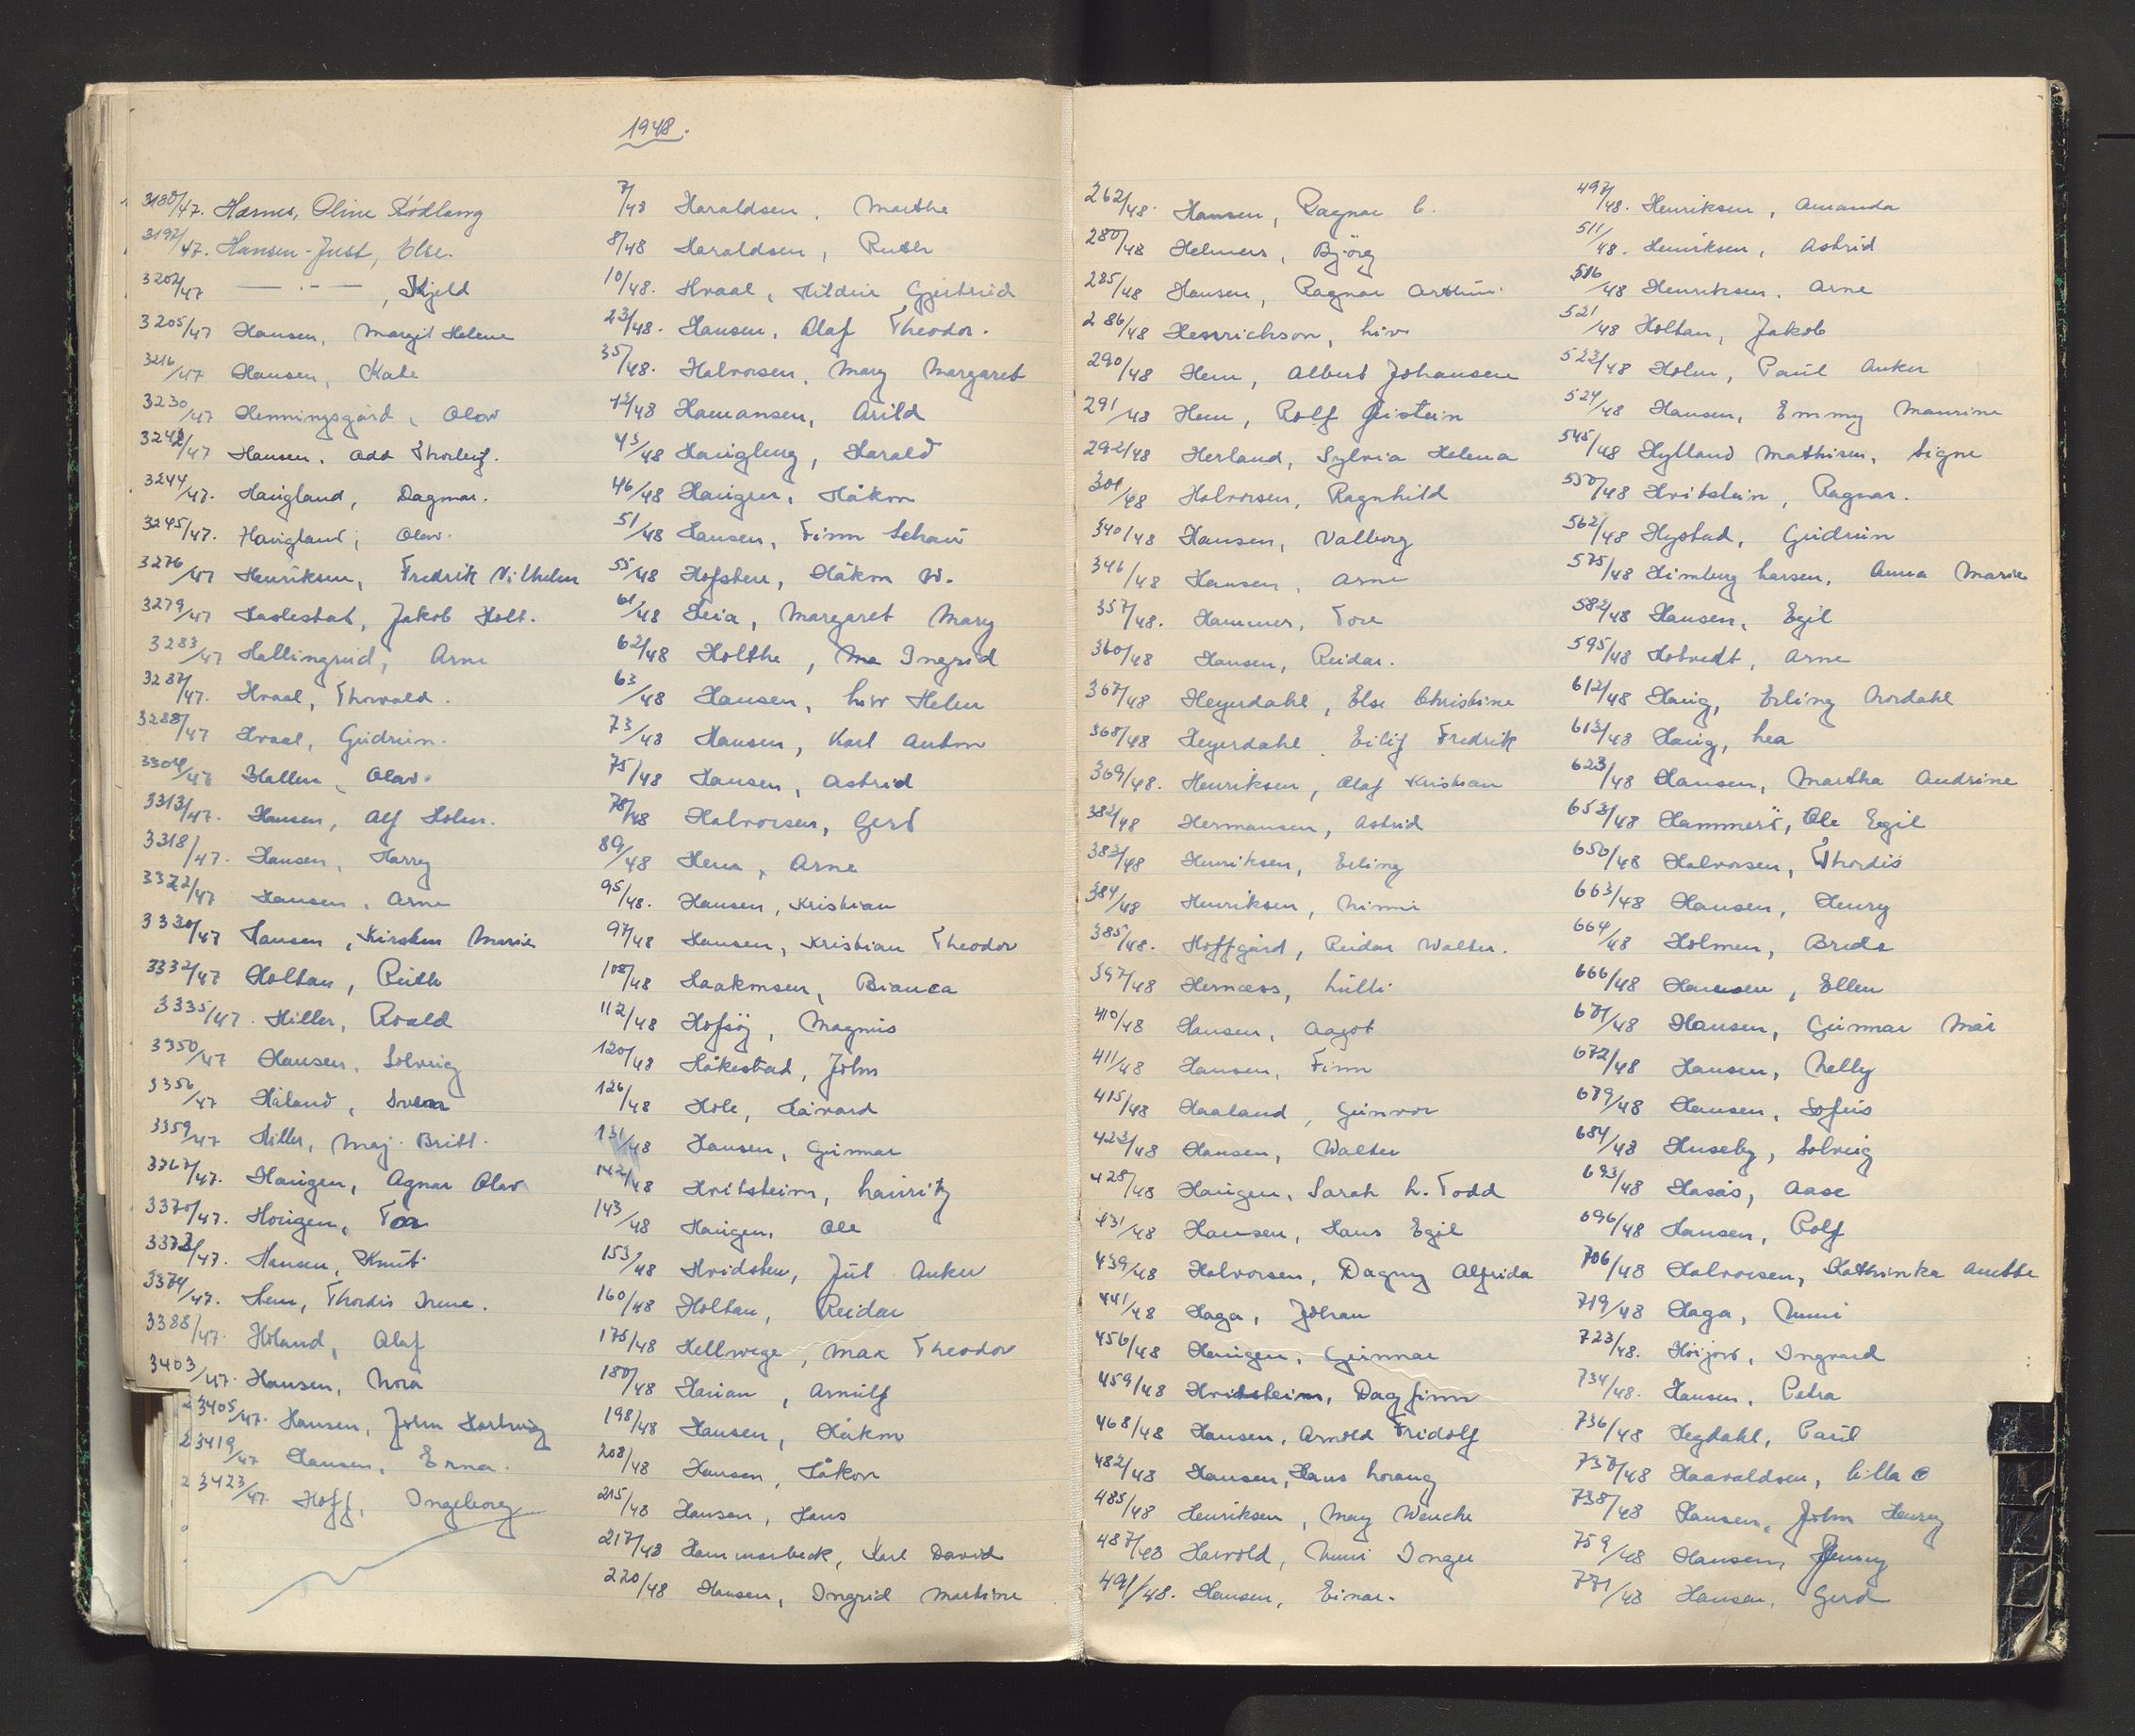 1948.
3180/47. Harnes, Oline Rødlang
3192/47. Hansen-Just, Else.
3202/47 — · — , Kjeld
3205/47 Hansen, Margit Helene
3216/47 Hansen, Kate
3230/47 Henningsgård, Olav
3242/47 Hansen, Odd Thorleif.
3244/47. Haugland, Dagmar.
3245/47. Haugland, Olav.
3276/47 Henriksen, Fredrik Vilhelm
3279/47 Haslestad, Jakob Holt.
3283/47 Hallingrud, Arne
3287/47. Hvaal, Thorvald.
3288/47 Hvaal, Gudrun.
3304/47 Hallen, Olav.
3313/47. Hansen, Alf Holm.
3318/47. Hansen, Harry
3322/47 Hansen, Arne
3330/47 Hansen, Kirsten Marie
3332/47 Holtan, Ruth
3335/47. Hiller, Roald
3350/47 Hansen, Solveig
3356/47 Håland, Svein
3359/47 Hiller, Maj-Britt.
3367/47. Haugen, Agnar Olav
3370/47. Haugen, Tor
3373/47. Hansen, Knut.
3374/47. Hem, Thordis Irene.
3388/47. Håland, Olaf
3403/47. Hansen, Nora
3405/47. Hansen, John Hartvig
3419/47 Hansen, Erna.
3423/47. Hoff, Ingeborg
7/48 Haraldsen, Marthe
8/48 Haraldsen, Ruth
10/48. Hvaal, Hildur Gjertrud
23/48. Hansen, Olaf Theodor.
35/48. Halvorsen, Mary Margaret
42/48 Hamansen, Arild
45/48 Haugberg, Harald
46/48 Haugen, Håkon
51/48 Hansen, Finn Schau
55/48 Hofsten, Håkon W.
61/48 Heia, Margaret Mary
62/48 Holthe, Ma Ingrid
63/48 Hansen, Liv Helen
73/48 Hansen, Karl Anton
75/48 Hansen, Astrid
78/48 Halvorsen, Gerd
89/48 Hem, Arne
95/48. Hansen, Kristian
97/48 Hansen, Kristian Theodor
108/48 Haakonsen, Bianca
112/48 Hofsöy, Magnus
120/48 Håkestad, John
126/48 Hole, Håvard
131/48 Hansen, Gunnar
142/48 Hvitsteim, Lauritz
143/48 Haugen, Ole
153/48 Hvidsten, Jul Anker
160/48 Holtan, Reidar
175/48 Hellwege, Max Theodor
180/48 Hauan, Arnulf
198/48 Hansen, Håkon
208/48 Hansen, Håkon
215/48 Hansen, Hans
217/48 Hammarbeck, Karl David
220/48 Hansen, Ingrid Martine
262/48. Hansen, Ragnar C.
280/48 Helmers, Björg
285/48 Hansen, Ragnar Arthur.
286/48 Henrichson, Liv
290/48 Hem, Albert Johansen
291/48 Hem, Rolf Øistein
292/48 Herland, Sylvia Helena
301/48 Halvorsen, Ragnhild
340/48 Hansen, Valborg
346/48 Hansen, Arne
357/48. Hammer, Tore
360/48 Hansen, Reidar.
367/48 Heyerdahl, Else Christine
368/48 Heyerdahl, Eilif Fredrik
369/48. Henriksen, Olaf Kristian
382/48 Hermansen, Astrid
383/48 Henriksen, Erling
384/48 Henriksen, Mimmi
385/48. Hoffgård, Reidar Walter.
397/48 Hernæss, Lulli
410/48 Hansen, Aagot
411/48 Hansen, Finn
415/48 Haaland, Gunvor
423/48 Hansen, Walter
428/48 Haugen, Sarah L. Todd
431/48 Hansen, Hans Egil
439/48 Halvorsen, Dagny Alfrida
441/48 Haga, Johan
456/48 Haugen, Gunnar
459/48 Hvitsteim, Dagfinn
468/48 Hansen, Arnold Fridolf
482/48 Hansen, Hans Lorang
485/48 Henriksen, May Wenche
487/48 Harvold, Unni Inger
491/48. Hansen, Einar.
497/48. Henriksen, Amanda
511/48. Henriksen, Astrid
516/48 Henriksen, Arne
521/48 Holtan, Jakob
523/48 Holm, Paul Anker
524/48 Hansen, Emmy Maurine
545/48 Hylland Mathisen, Signe
550/48 Hvitstein, Ragnar.
562/48 Hystad, Gudrun
575/48 Himberg Larsen, Anna Marie
582/48 Hansen, Egil
595/48 Hotvedt, Arne
612/48 Haug, Erling Nordahl
613/48 Haug, Lea
623/48 Hansen, Martha Andrine
653/48 Hammerö, Ole Egil
656/48 Halvorsen, Thordis
663/48 Hansen, Henry
664/48 Holmen, Brede
666/48 Hansen, Ellen
671/48 Hansen, Gunnar Mår
672/48 Hansen, Nelly
679/48 Hansen, Sofus
684/48 Huseby, Solveig
693/48 Hasås, Aase
696/48 Hansen, Rolf
706/48 Halvorsen, Kathrinka Anette
719/48 Haga, Unni
723/48. Höijord, Ingvard
734/48. Hansen, Petra
736/48 Hegdahl, Paul
737/48 Haavaldsen, Cilla C
738/48 Hansen, John Henry
759/48 Hansen, Jenny
771/48 Hansen, Gerd